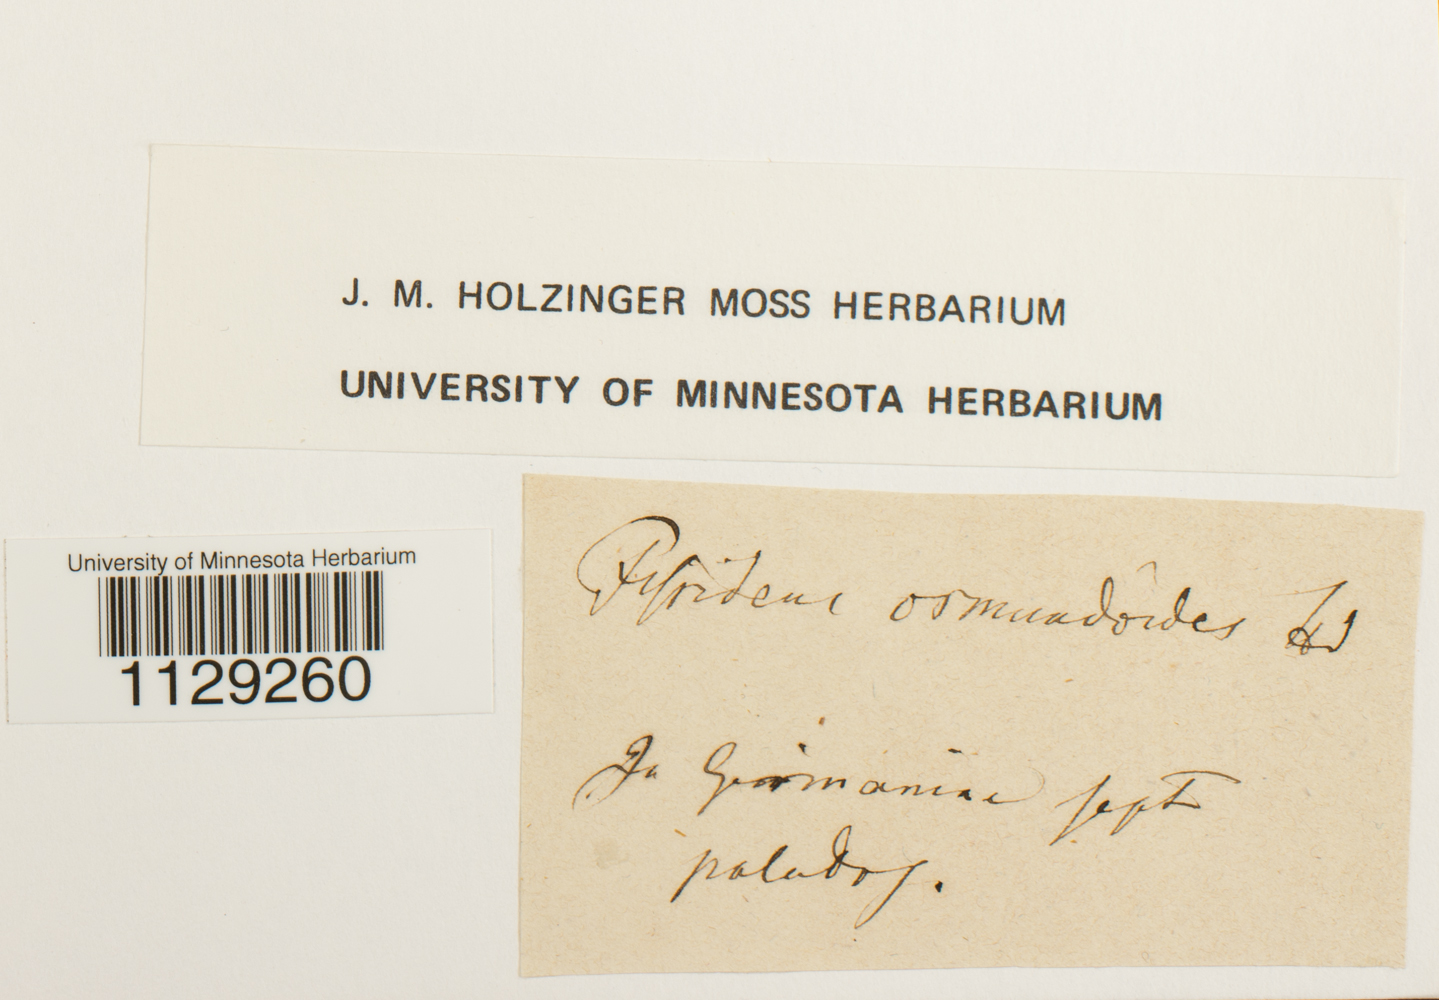 J. M. HOLZINGER MOSS HERBARIUM
UNIVERSITY OF MINNESOTA HERBARIUM
University of Minnesota Herbarium
1129260
Fissidens osmundoides Hd
In Germaniae sept
paludos.